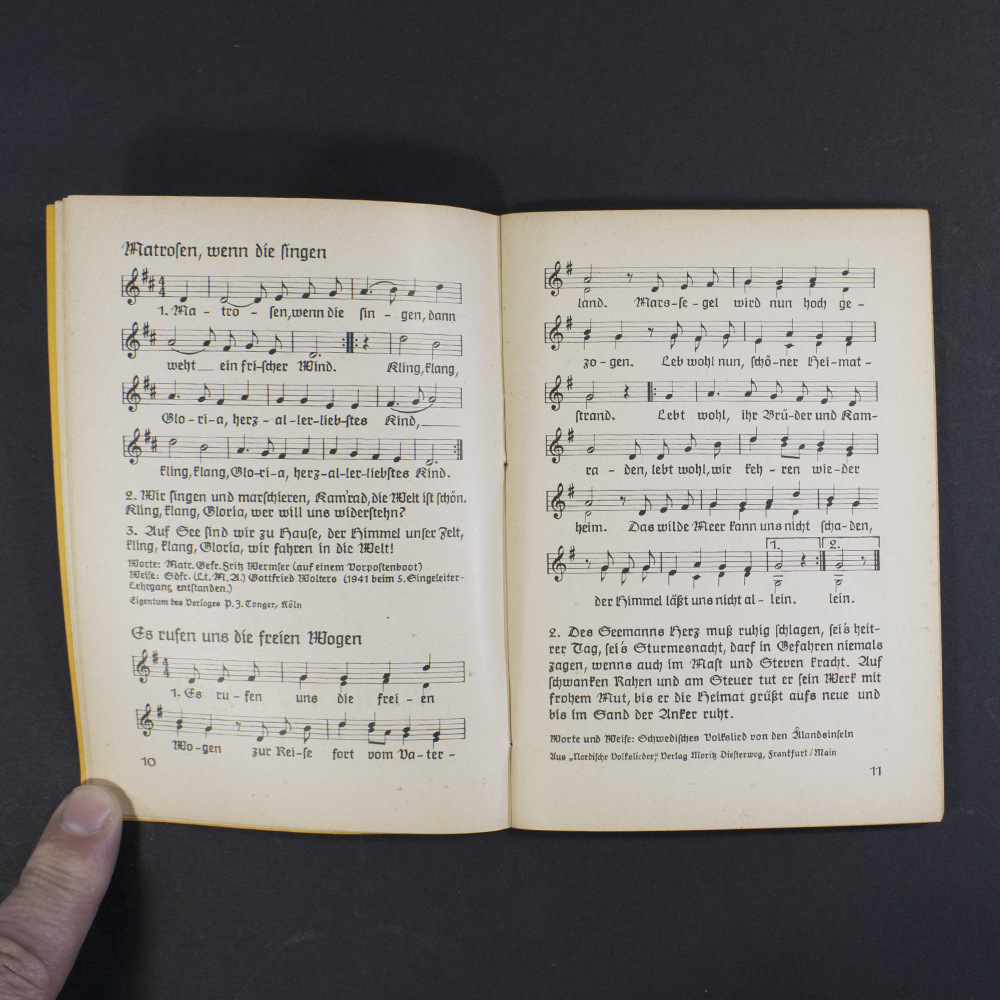 Matrosen, wenn die singen
1. Ma - tro - sen, wenn die sin - gen, dann
weht ein fri-scher Wind. Kling, klang,
Glo - ri - a, herz - al - ler - lieb - stes Kind,
kling, klang, Glo-ri-a, herz-al-ler-liebstes Kind.
2. Wir singen und marschieren, Kam'rad, die Welt ist schön.
Kling, klang, Gloria, wer will uns widerstehn?
3. Auf See sind wir zu Hause, der Himmel unser Zelt,
kling, klang, Gloria, wir fahren in die Welt!
Worte: Matr. Gefr. Fritz Wermser (auf einem Vorpostenboot)
Weise: Sdfr. (Lt. M. A.) Gottfried Wolters (1941 beim 5. Singeleiter-
Lehrgang entstanden.)
Eigentum des Verlages P. J. Tonger, Köln
Es rufen uns die freien Wogen
1. Es ru - fen uns die frei - en
Wo - gen zur Rei - se fort vom Va - ter -
10
land. Mars - se - gel wird nun hoch ge -
zo - gen. Leb wohl nun, schö - ner Hei - mat -
strand. Lebt wohl, ihr Brü - der und Kam-
ra - den, lebt wohl, wir keh - ren wie - der
heim. Das wilde Meer kann uns nicht scha - den,
1. 2.
der Himmel läßt uns nicht al - lein. lein.
2. Des Seemanns Herz muß ruhig schlagen, sei's heit-
rer Tag, sei's Sturmesnacht, darf in Gefahren niemals
zagen, wenns auch im Mast und Steven kracht. Auf
schwanken Rahen und am Steuer tut er sein Werk mit
frohem Mut, bis er die Heimat grüßt aufs neue und
bis im Sand der Anker ruht.
Worte und Weise: Schwedisches Volkslied von den Ålandsinseln
Aus „Nordische Volkslieder," Verlag Moritz Diesterweg, Frankfurt/Main
11